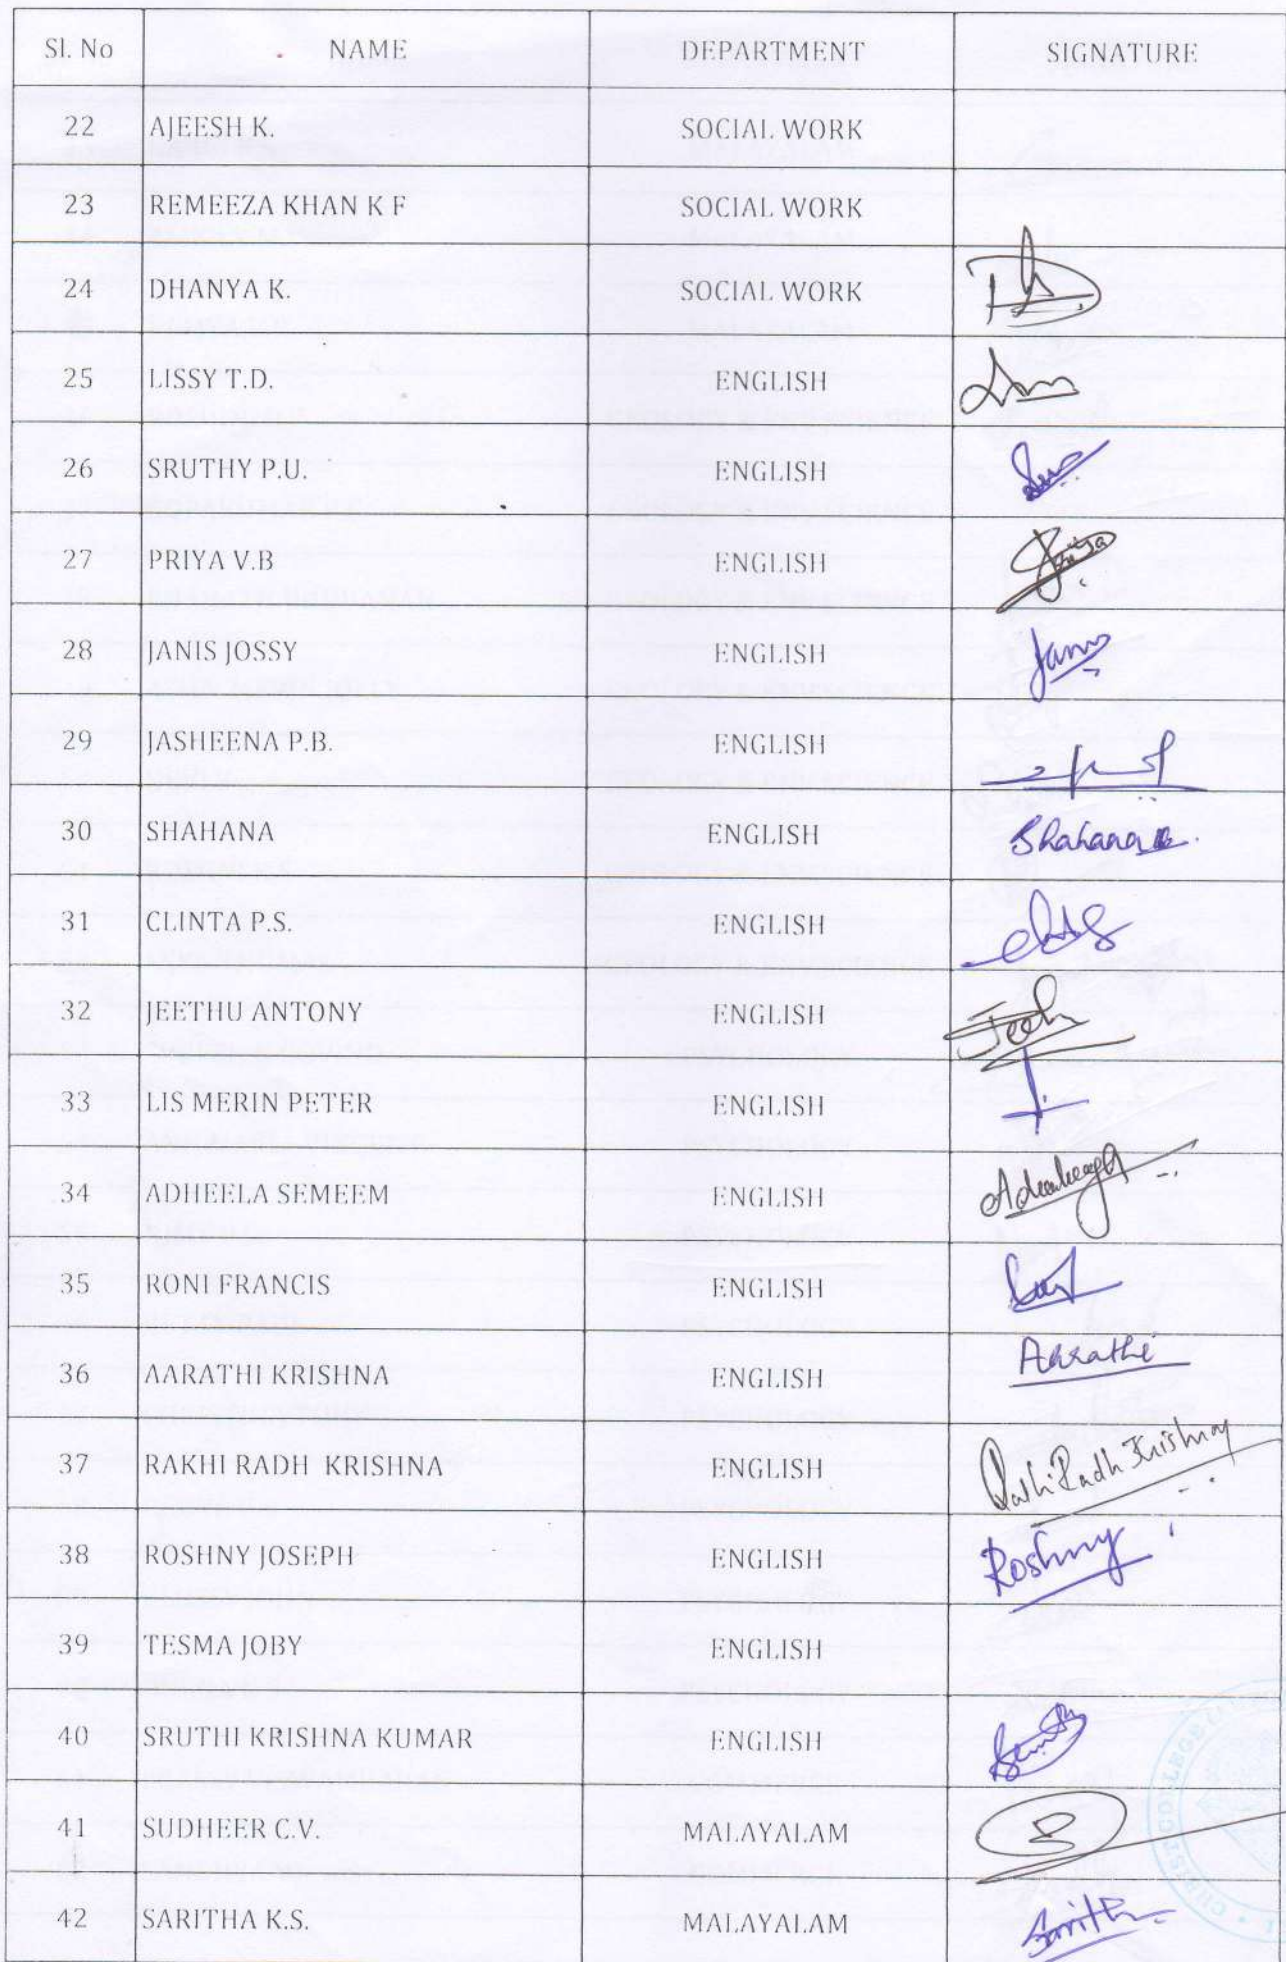 Sl. No NAME DEPARTMENT SIGNATURE
22 AJEESH K. SOCIAL WORK
23 REMEEZA KHAN K F SOCIAL WORK
24 DHANYA K. SOCIAL WORK
25 LISSY T.D. ENGLISH
26 SRUTHY P.U. ENGLISH
27 PRIYA V.B ENGLISH
28 JANIS JOSSY ENGLISH Janis
29 JASHEENA P.B. ENGLISH
30 SHAHANA ENGLISH Shahana
31 CLINTA P.S. ENGLISH
32 JEETHU ANTONY ENGLISH
33 LIS MERIN PETER ENGLISH
34 ADHEELA SEMEEM ENGLISH
35 RONI FRANCIS ENGLISH
36 AARATHI KRISHNA ENGLISH Aarathi
37 RAKHI RADH KRISHNA ENGLISH Rakhi Radh Krishna
38 ROSHNY JOSEPH ENGLISH Roshny
39 TESMA JOBY ENGLISH
40 SRUTHI KRISHNA KUMAR ENGLISH
41 SUDHEER C.V. MALAYALAM
42 SARITHA K.S. MALAYALAM